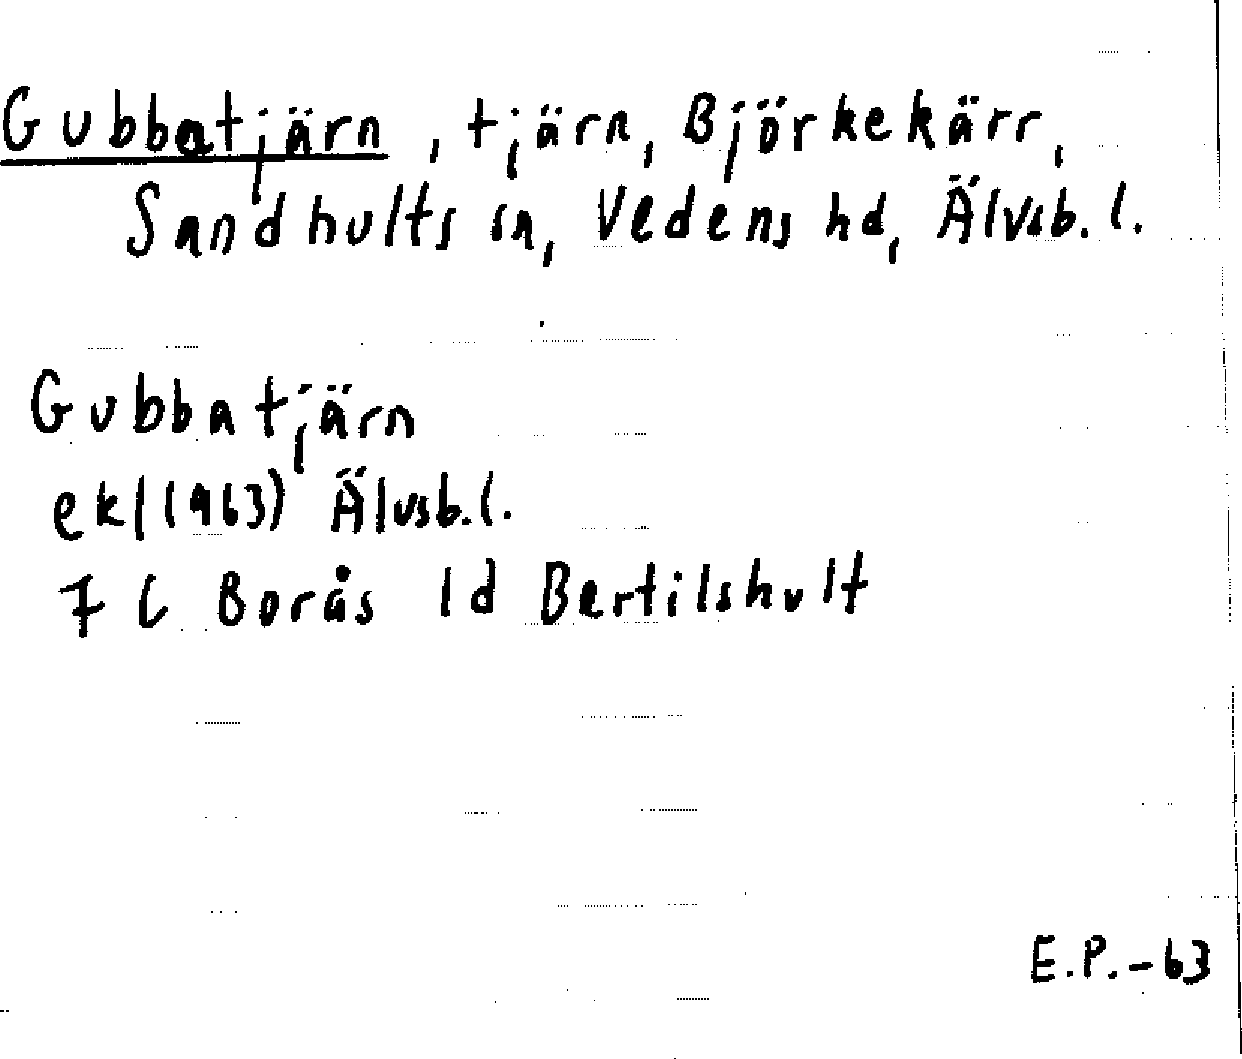 Gubbatjärn, tjärn, Björkekärr,
Sandhults sn, Vedens hd, Älvsb. l.
Gubbatjärn
ek/(1963) Älvsb. l.
7 C Borås 1d Bertilshult
E.P.-63